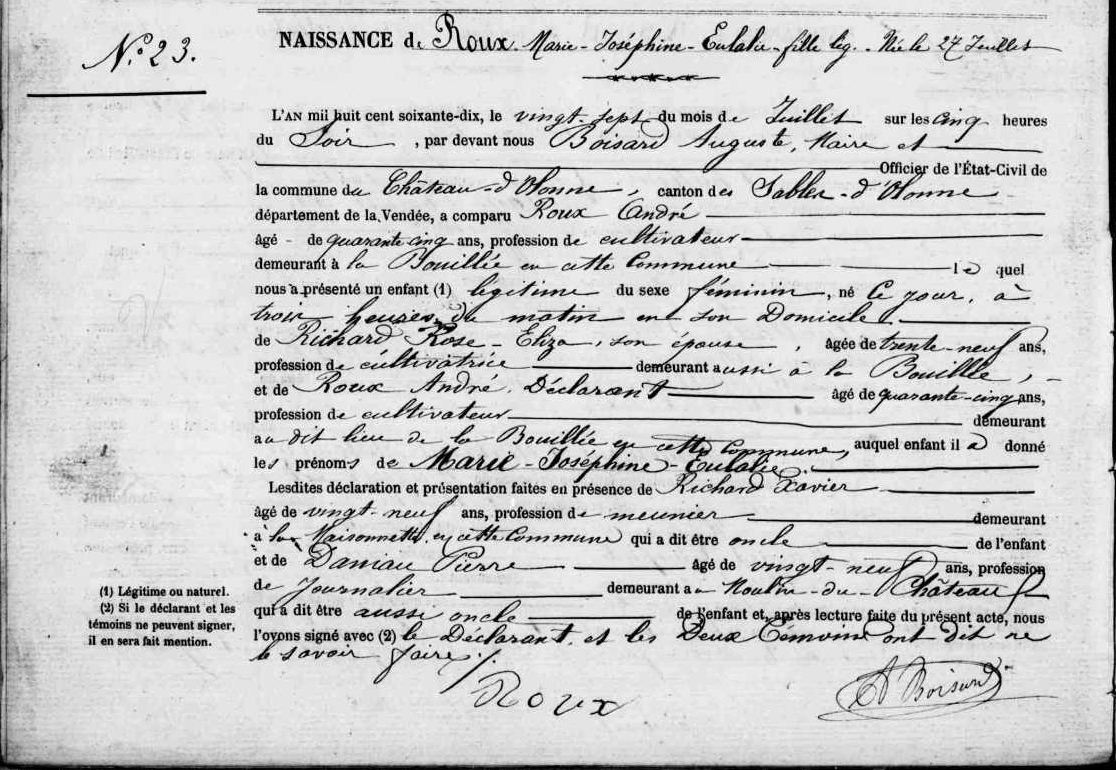 N.° 23.
NAISSANCE de Roux Marie-Joséphine-Eulalie-fille lég. Née le 27 Juillet
L'AN mil huit cent soixante-dix, le vingt-sept du mois de Juillet sur les cinq heures
du Soir, par devant nous Boisard Auguste, Maire et
Officier de l'État-Civil de
la commune du Château-d'Olonne, canton des Sables-d'Olonne
département de la Vendée, a comparu Roux André
âgé de quarante cinq ans, profession de cultivateur
demeurant à la Bouillée en cette Commune le quel
nous a présenté un enfant (1) légitime du sexe féminin, né Ce jour, à
trois heures du matin en son Domicile
de Richard Rose-Eliza, son épouse, âgée de trente-neuf ans,
profession de cultivatrice demeurant aussi à la Bouillée,
et de Roux André Déclarant âgé de quarante-cinq ans,
profession de cultivateur demeurant
au dit lieu de la Bouillée en cette Commune, auquel enfant il a donné
les prénoms de Marie-Joséphine-Eulalie.
Lesdites déclaration et présentation faites en présence de Richard Xavier
âgé de vingt-neuf ans, profession de meunier demeurant
à la Maisonnette en cette Commune qui a dit être oncle de l'enfant
et de Daniau Pierre âgé de vingt-neuf ans, profession
de Journalier demeurant au Moulin-du-Château
qui a dit être aussi oncle de l'enfant et, après lecture faite du présent acte, nous
l'avons signé avec (2) le Déclarant, et les Deux Témoins ont dit ne
le savoir faire ./.
(1) Légitime ou naturel.
(2) Si le déclarant et les
témoins ne peuvent signer,
il en sera fait mention.
Roux
A Boisard